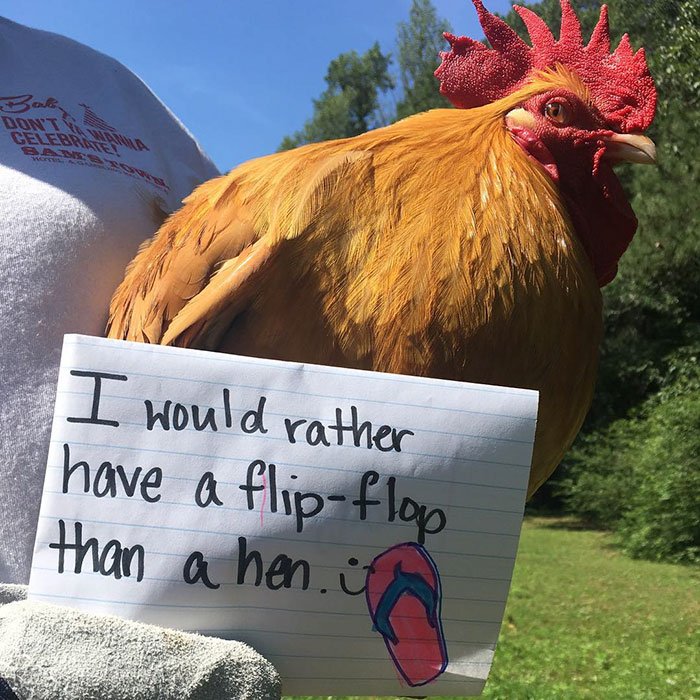 DON'T YA WANNA
CELEBRATE!
SAM'S TOWN
I would rather
have a flip-flop
than a hen. :)